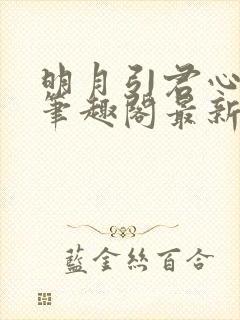 明月引君心
筆趣閣最新
藍金絲百合